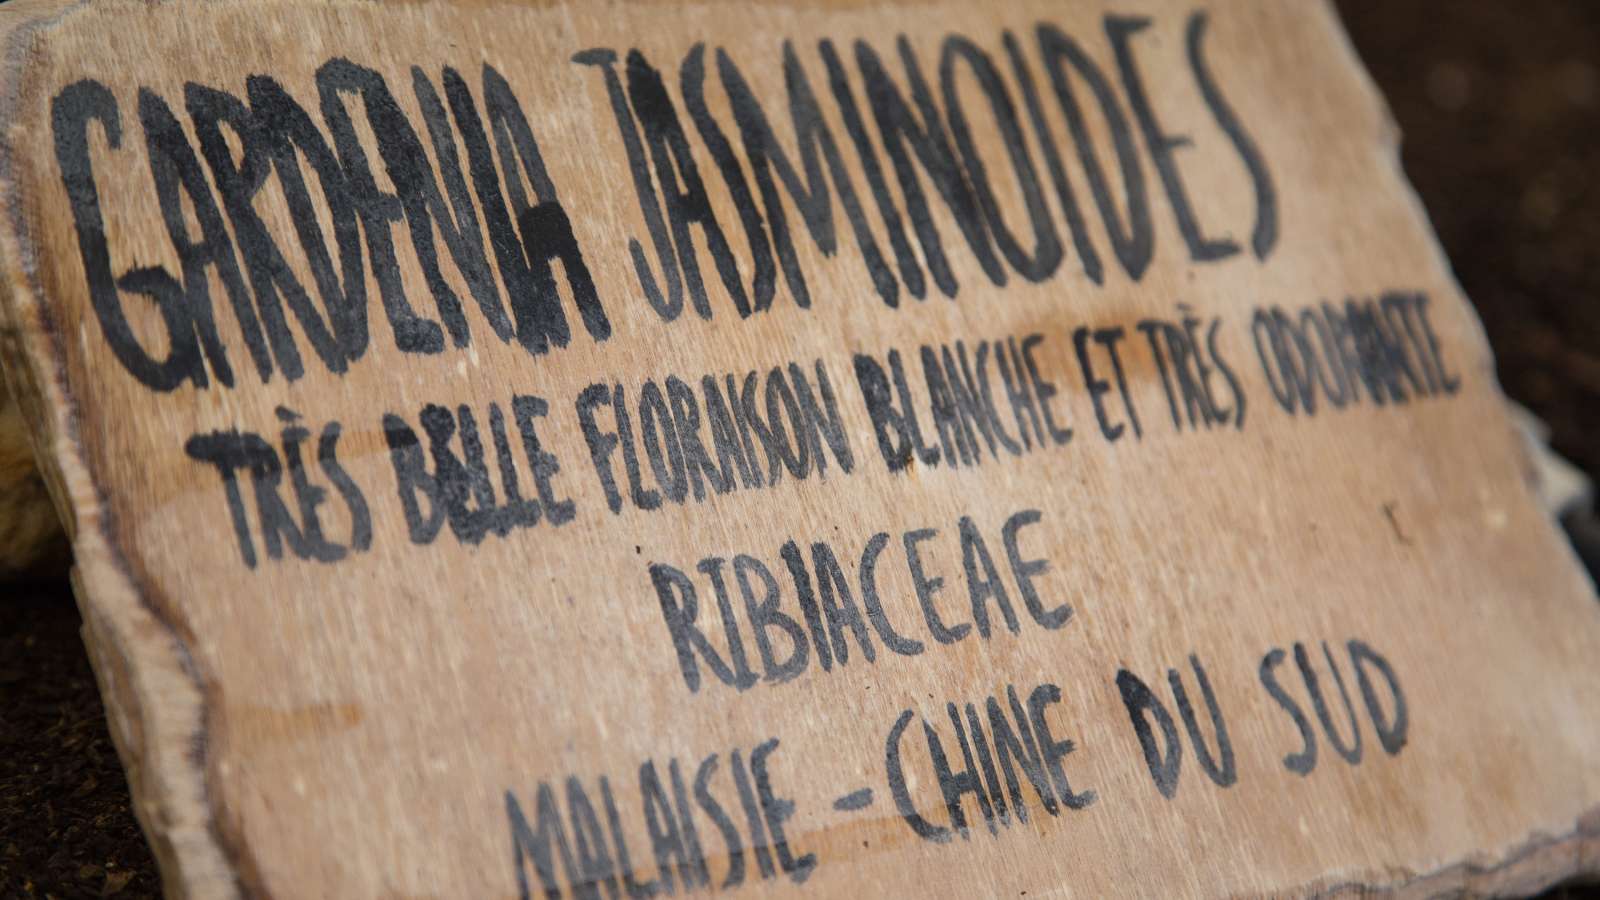 GARDENIA JASMINOIDES
TRÈS BELLE FLORAISON BLANCHE ET TRÈS ODORANTE
RIBIACEAE
MALAISIE - CHINE DU SUD